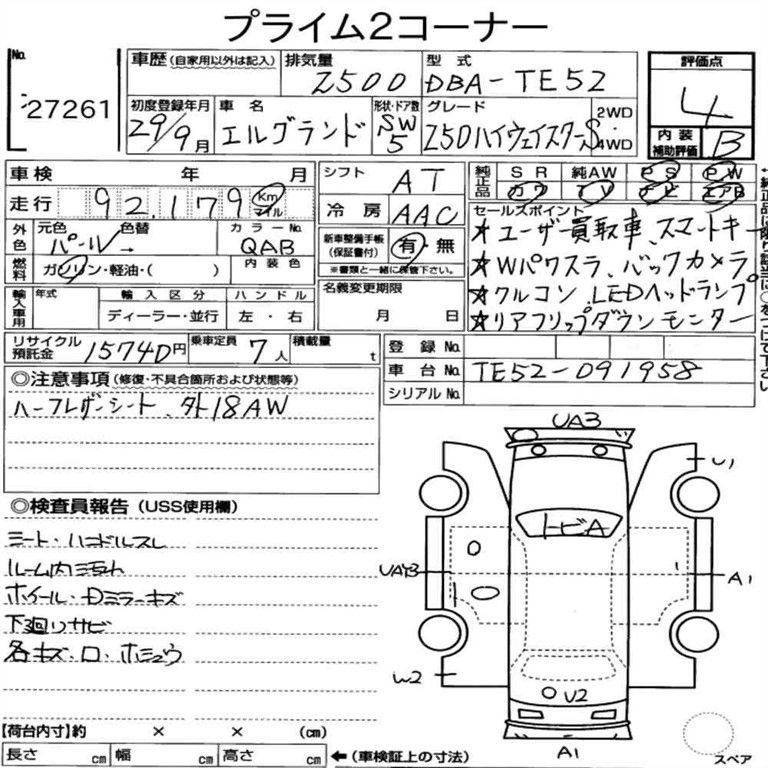 プライム2コーナー
No. 27261
車歴(自家用以外は記入)
排気量 2500
型式 DBA-TE52
評価点 4
初度登録年月 29/9月
車名 エルグランド
形状・ドア数 SW 5
グレード 250ハイウェイスターS
2WD
4WD
内装補助評価 B
車検 年 月
走行 92,179 Km マイル
シフト AT
冷房 AAC
純正品 SR 純AW PS PW
カワ TV ナビ エアB
外色 元色 パール 色替 → カラーNo. QAB
燃料 ガソリン・軽油・( ) 内装色
新車整備手帳(保証書付) 有・無
※書類と一緒に保管下さい。
セールスポイント
★ユーザー買取車、スマートキー
★Wパワスラ、バックカメラ
★クルコン、LEDヘッドランプ
★リアフリップダウンモニター
輸入車用 年式 輸入区分 ハンドル
ディーラー・並行 左・右
名義変更期限
月 日
リサイクル預託金 15740円 乗車定員 7人 積載量 t
登録No.
車台No. TE52-091958
シリアルNo.
◎注意事項(修復・不具合箇所および状態等)
ハーフレザーシート、外18AW
◎検査員報告(USS使用欄)
シート・ハンドルスレ
ルーム内汚れ
ホイール・Dミラーキズ
下廻りサビ
各キズ・凹・ホシュウ
UA3
U1
トビA
UAY3
A1
W2
U2
A1
スペア
【荷台内寸】約 × × (cm)
長さ cm 幅 cm 高さ cm ←(車検証上の寸法)